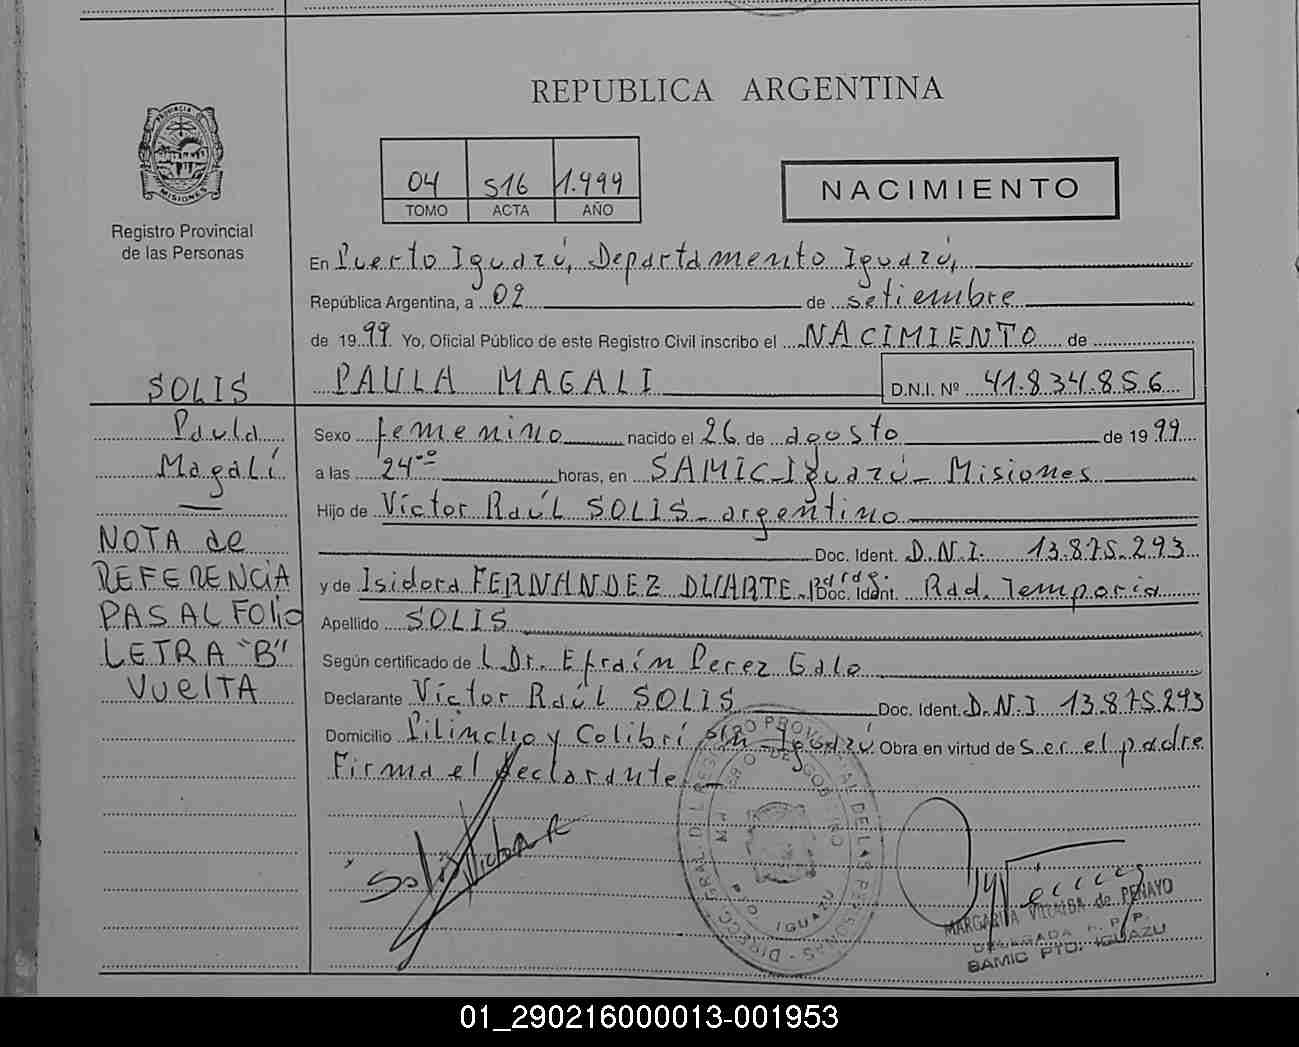 REPUBLICA ARGENTINA
PROVINCIA
MISIONES
Registro Provincial
de las Personas
04 516 1.999
TOMO ACTA AÑO
NACIMIENTO
En Puerto Iguazú, Departamento Iguazú,
República Argentina, a 02 de setiembre
de 1999 Yo, Oficial Público de este Registro Civil inscribo el NACIMIENTO de
PAULA MAGALI D.N.I. Nº 41.834.856
SOLIS
Paula
Magalí
NOTA de
REFERENCIA
PASAL FOLIO
LETRA "B"
VUELTA
Sexo femenino nacido el 26 de agosto de 1999
a las 24 horas, en SAMIC-Iguazú-Misiones
Hijo de Víctor Raúl SOLIS-argentino
Doc. Ident. D.N.I. 13.875.293
y de Isidora FERNANDEZ DUARTE. Doc. Ident. Rad. Temporia
Apellido SOLIS
Según certificado de Dr. Efraín Perez Galo
Declarante Víctor Raúl SOLIS Doc. Ident. D.N.I 13.875.293
Domicilio Pilincho y Colibrí s/n-Iguazú Obra en virtud de ser el padre
Firma el declarante.-
Solis Victor R
DIRECC. GRAL. DEL REGISTRO PROVINCIAL DE LAS PERSONAS
PTO IGUAZU
MARGARITA VILLALBA de PENAYO
DELEGADA R. P. P.
SAMIC PTO. IGUAZU
01_290216000013-001953